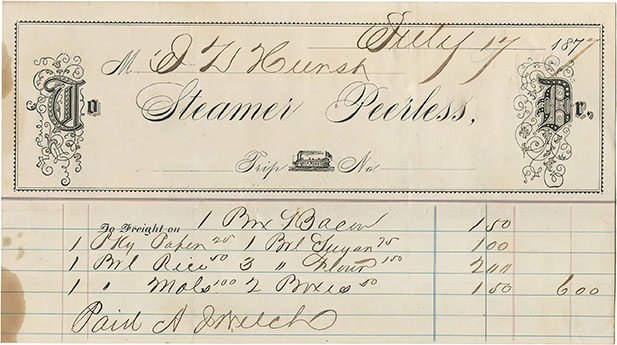 July 17 1877
M. J D Hursh
To Steamer Peerless, Dr.
Trip No.
To Freight on 1 Box Bacon 1 50
1 Pkg Paper 25 1 Brl Sugar 75 1 00
1 Brl Rice 50 3 " Flour 150 2 00
1 " Mols 100 2 Boxes 50 1 50 6 00
Paid A J Welch